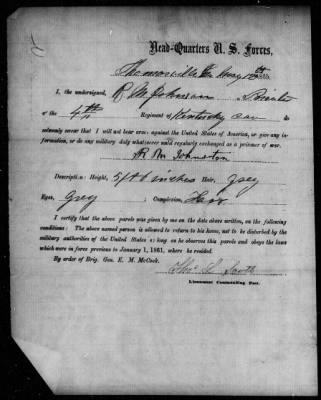 Head-Quarters U. S. Forces,
Thomasville Ga May 1865.
I, the undersigned, R M Johnson Private
of the 4th Regiment of Kentucky Cav do
solemnly swear that I will not bear arms against the United States of America, or give any in-
formation, or do any military duty whatsoever until regularly exchanged as a prisoner of war.
R M Johnston
Description: Height, 5 ft 6 inches Hair,
Eyes, Grey Complexion,
I certify that the above parole was given by me on the date above written, on the following
conditions: The above named person is allowed to return to his home, not to be disturbed by the
military authorities of the United States so long as he observes this parole and obeys the laws
which were in force previous to January 1, 1861, where he resided.
By order of Brig. Gen. E. M. McCook.
Lieutenant Commanding Post.